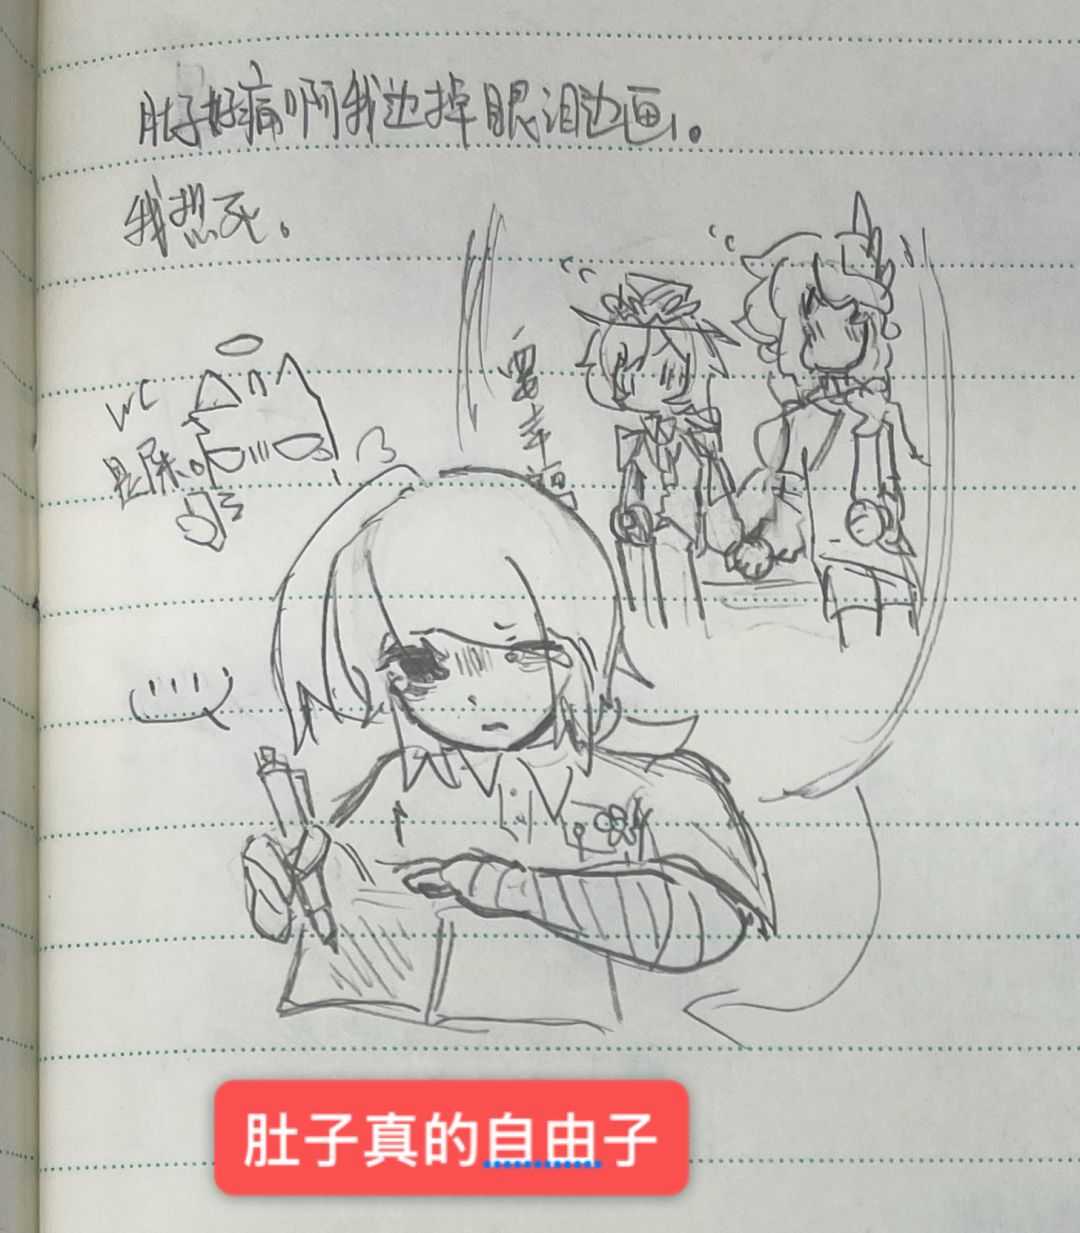 肚子好痛啊我边掉眼泪边画。
我想死。
要幸福
WC
是屎
肚子真的自由子